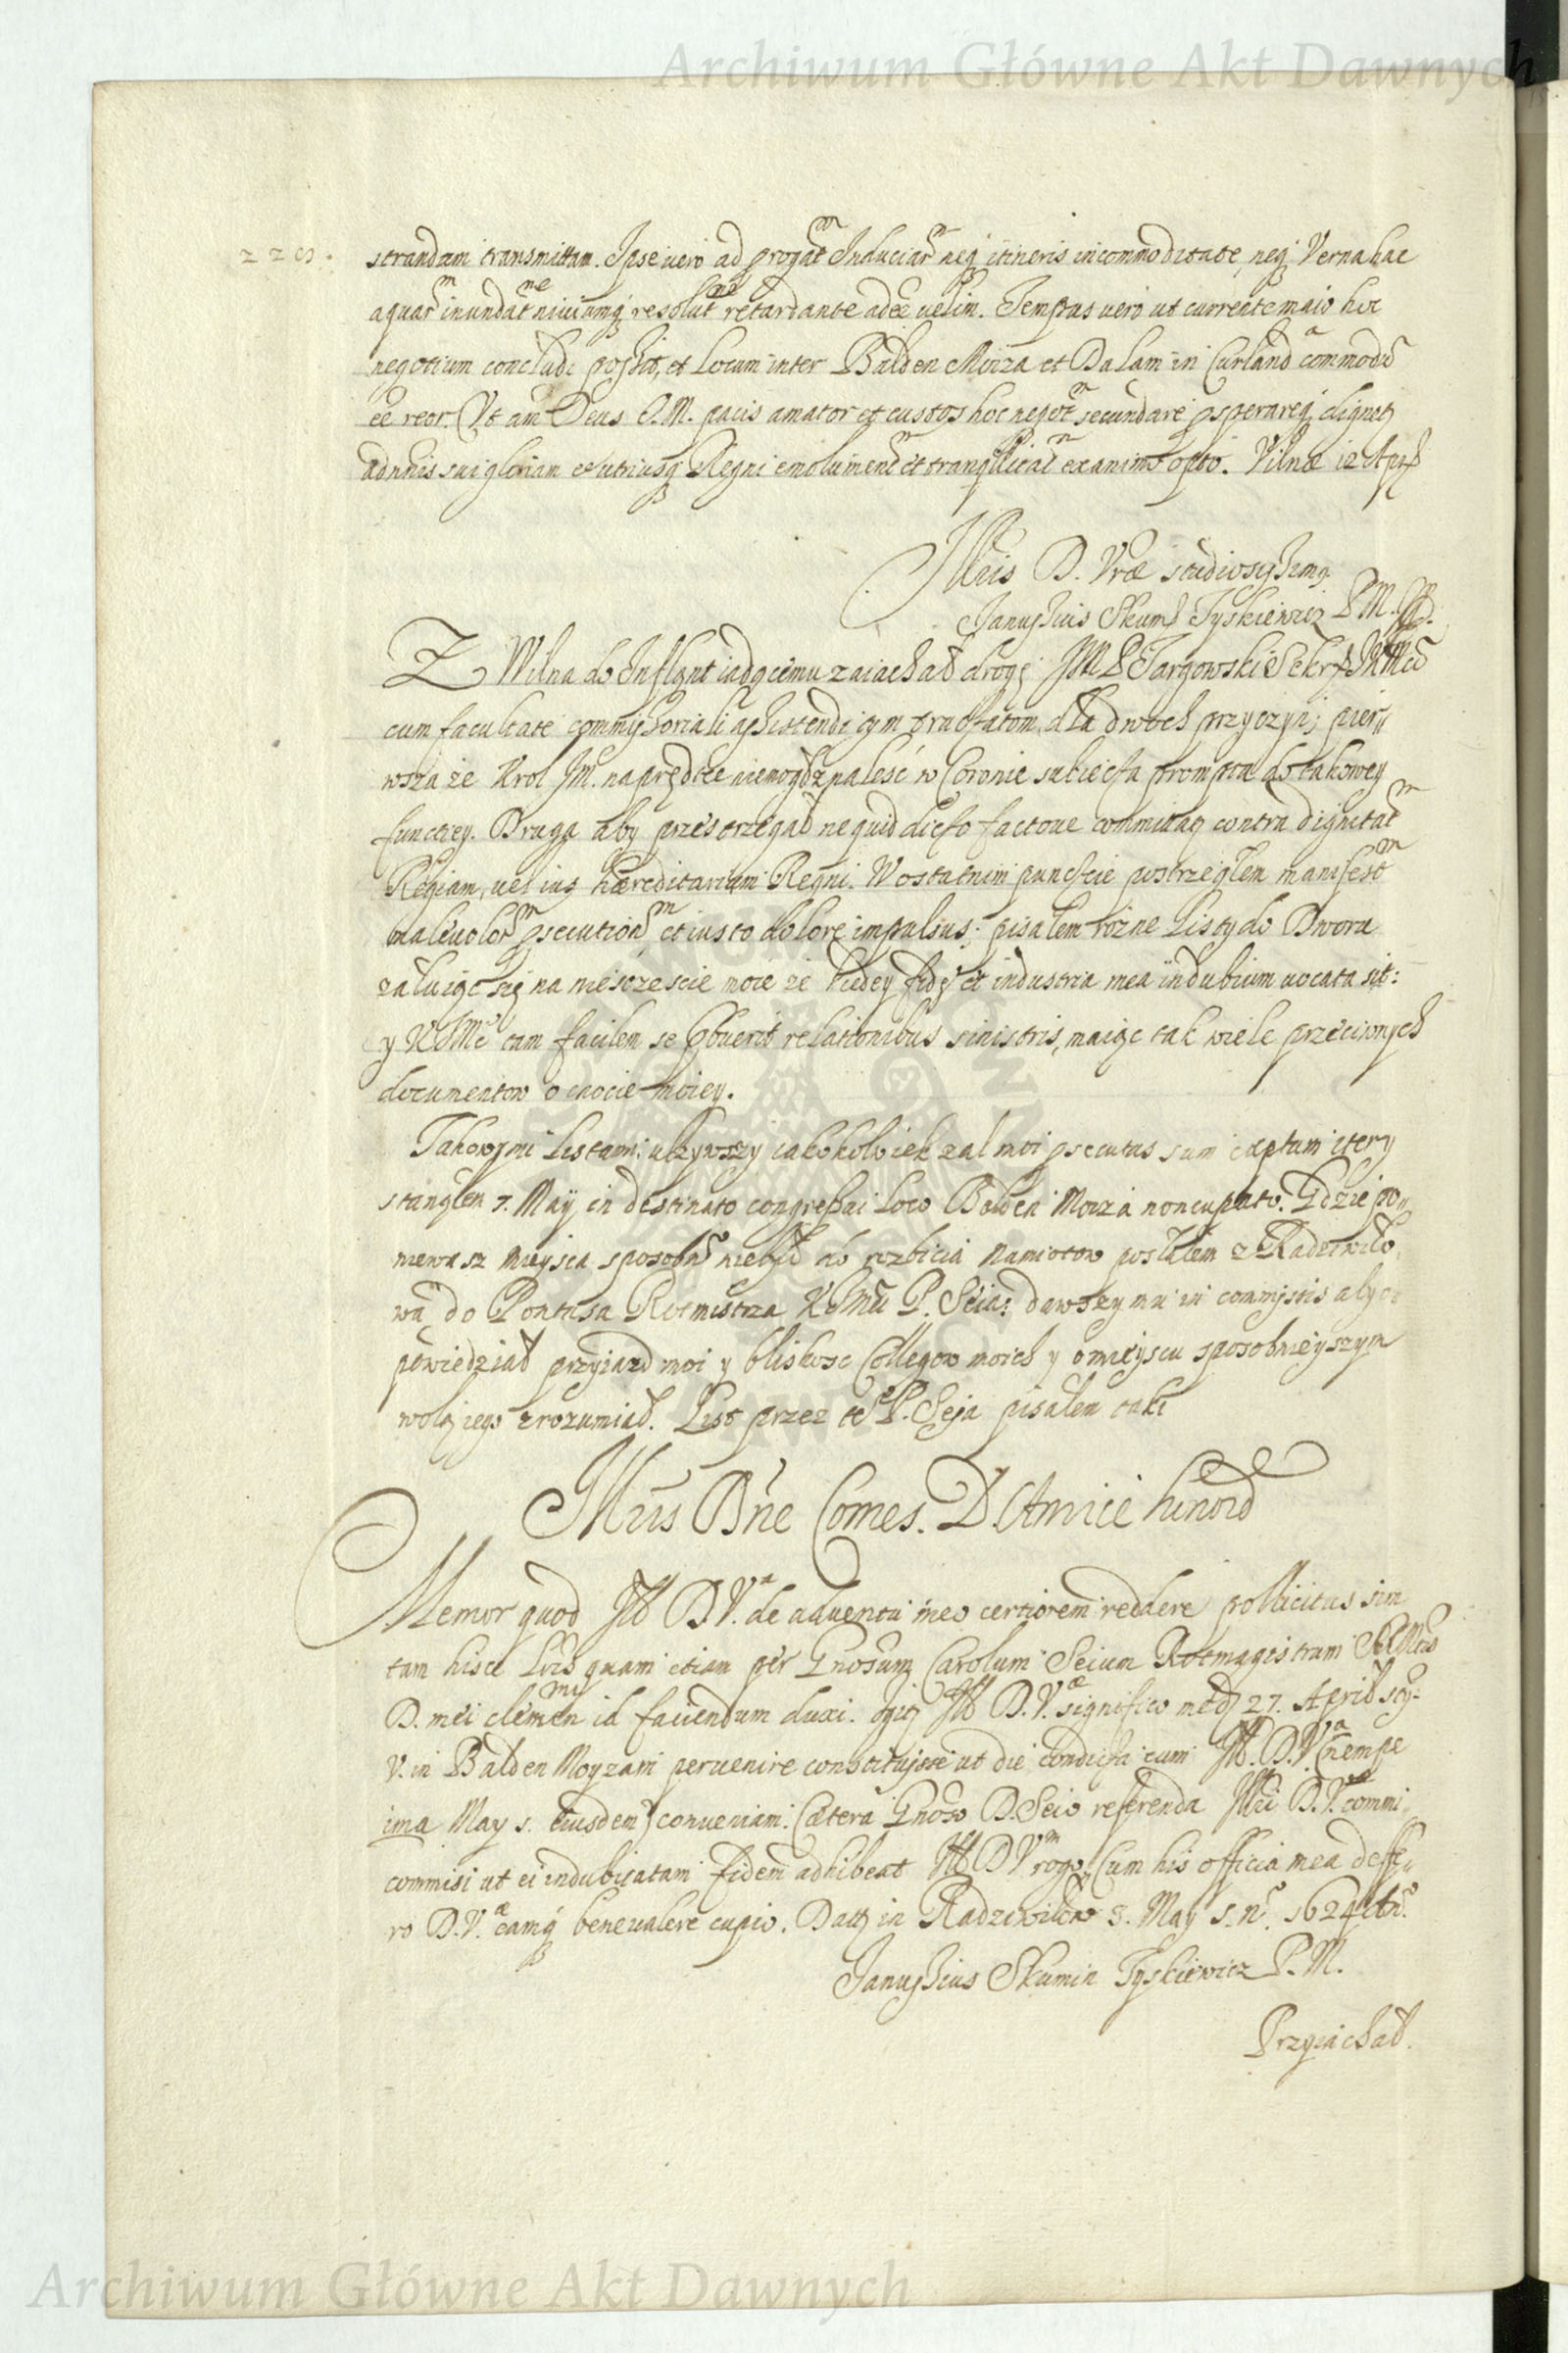 Archiwum Główne Akt Dawnych
strandam transmittam. Ipse vero ad progat̃m Induciar̃m neq itineris incommoditate, neq Verna hac
aquar̃m inundat̃ne niviumq resolut̃ne retardante adeẽ velim. Tempus vero ut currente maio hoc
negotium concludi possit, et Locum inter Balden Moiza et Dalam in Curland commodũ
eẽ reor. Vt am̃ Deus O. M. pacis amator et custos hoc negot̃m secundare psperareq dignet
ad nñis sui gloriam et utriusq Regni emolument̃m et tranqllitat̃m ex animo opto. Vilnæ 12 Apr
Illris D. Vræ studiosissimq
Janussius Skum Tyskiewicz P M.
Z Wilna do Inflant iadącemu zaiachał drogę JM P Targowski Sekr JKMci
cum facultate commissoriali assistendi tractatom, dla dwoch przyczyn; pier
wsza że Krol JM. naprędtce niemogł znaleść w Coronie subiecta prompta do takowey
functiey. Druga aby przestrzegał ne quid dicto factoue committaq contra dignitat̃m
Regiam, uel ius hæreditarium Regni. W ostatnim punkcie postrzegłem manifest̃m
malevolor̃m psecutioñm et iusto dolore impulsus; pisałem rożne Listy do Dworu
załuiąc się na nieścżescie moie że kiedy fides et industria mea in dubium vocata sit:
y KJMć tam facilem se pbuerit relationibus sinistris, maiąc tak wiele przeciwnych
documentow o cnocie moiey.
Takowymi Listami ulzywszy iakokolwiek żal moi psecutus sum cæptum iter y
stanąłem 7. Maÿ in destinato congressui Loco Balden Moiza noncupato. Gdzie po
niewasz mieysca sposobne niebyło do rozbicia namiotow posłałem z Radziwiło
wa do Pontusa Rotmistrza KJMci P. Seia: dawszy mu in commissis aby o
powiedział przyiazd moi y bliskosc Collegow moich y o mieyscu sposobnieyszym
wolą iego zrozumiał. List przez te P. Seja pisałem taki
Illris Dñe Comes. D. Amice honord
Memor quod Ill D.V.a de adventu meo certiorem reddere pollicitus sim
tam hisce Lris quam etiam per Gnosum Carolum Seium Rotmagistrum SRMtis
D. mei clemen̄mi id faciendum duxi. Igiq Ill D.V.æ significo me 27. April sty:
V. in Balden Moyzam pervenire constituisse ut die condicta cum Ill. D.V.a (nempe
ima May s. eiusdem) conveniam. Cætera Gnoso D. Seio referenda Illri D.V. commi
commisi ut ei indubitatam fidem adhibeat Ill D V rogo. Cum his officia mea deffe
ro D.V.æ eamq bene valere cupio. Datt in Radziwilow 3. May s. n. 1624 An.
Janussius Skumin Tyskiewicz P. M.
Przyiachał.
Archiwum Główne Akt Dawnych